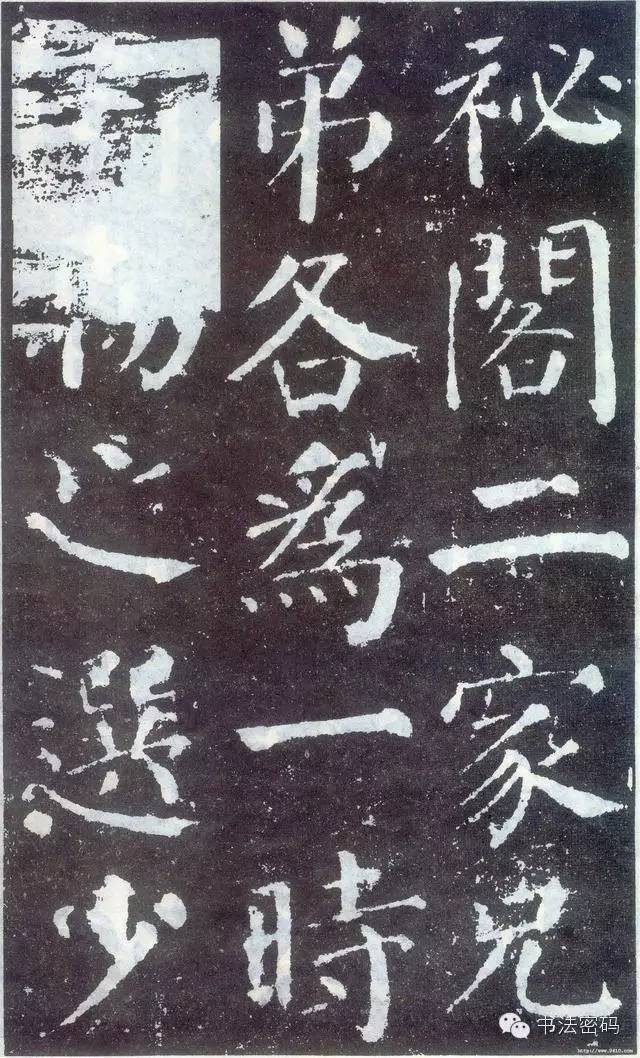 祕閣二家兄
弟各爲一時
之選少
书法密码